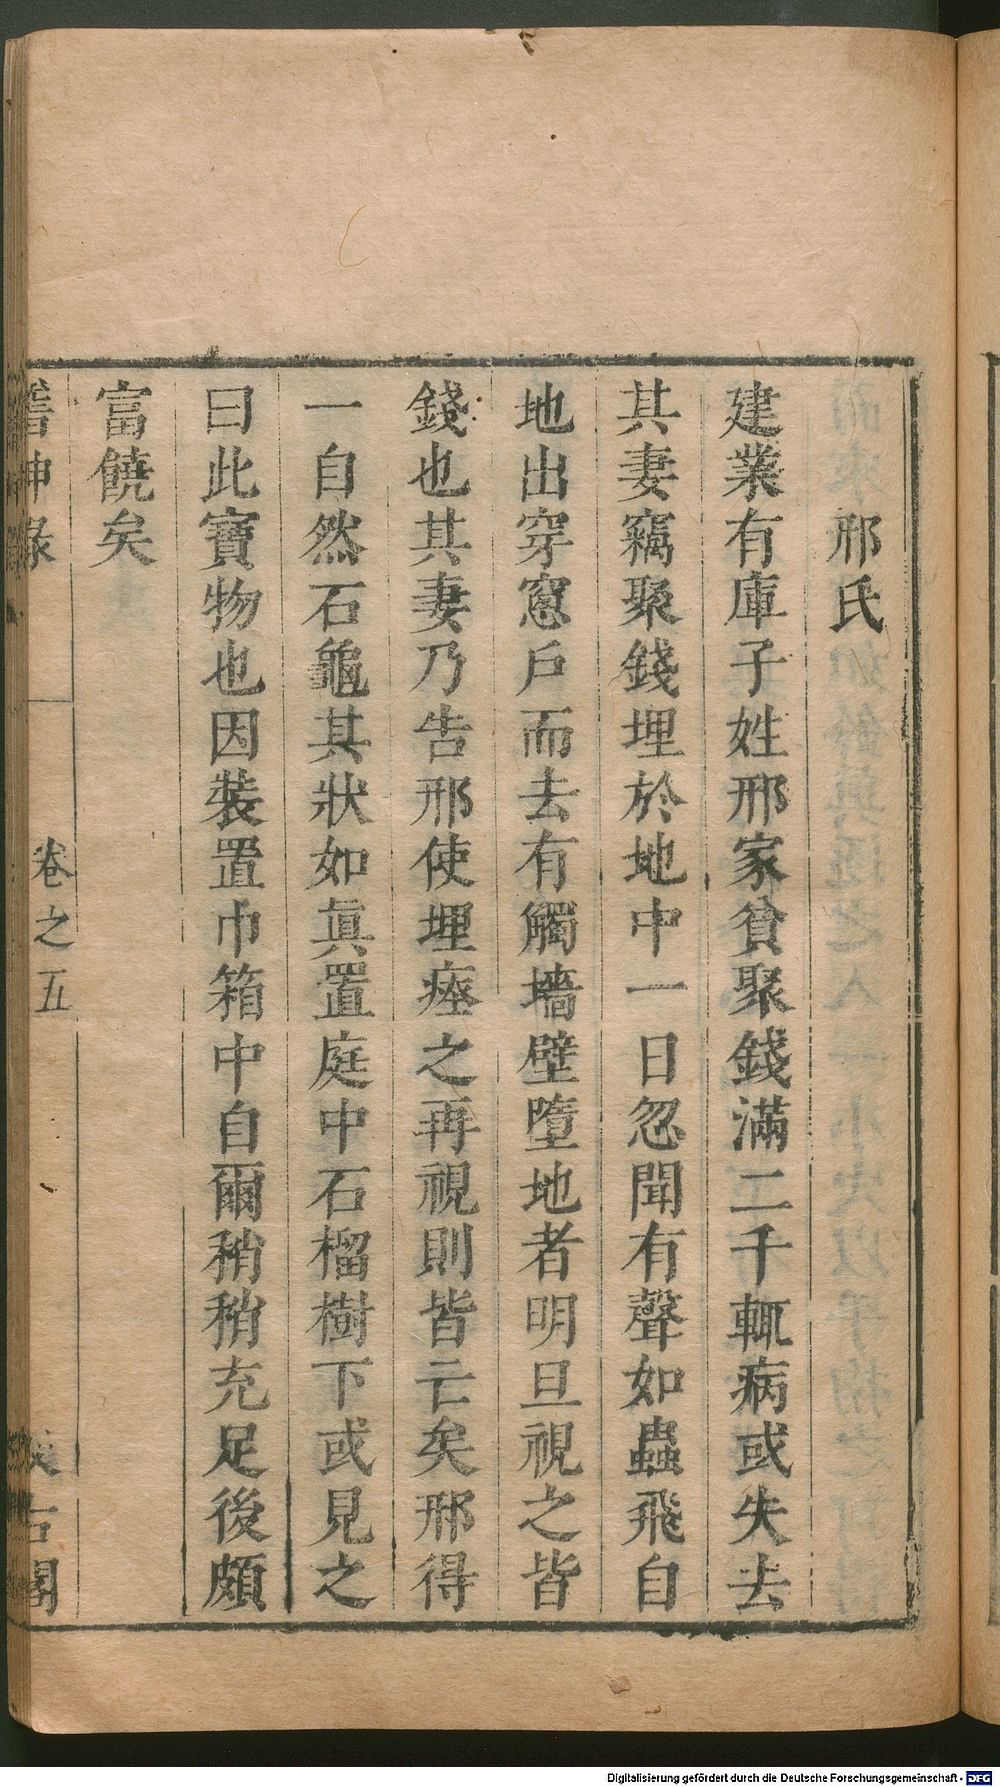 邢氏
建業有庫子姓邢家貧聚錢滿二千輒病或失去
其妻竊聚錢埋於地中一日忽聞有聲如蟲飛自
地出穿窻戶而去有觸墻壁墮地者明旦視之皆
錢也其妻乃告邢使埋瘞之再視則皆亡矣邢得
一自然石龜其狀如眞置庭中石榴樹下或見之
曰此寶物也因裝置巾箱中自爾稍稍充足後頗
富饒矣
稽神錄 卷之五 汲古閣
Digitalisierung gefördert durch die Deutsche Forschungsgemeinschaft - DFG